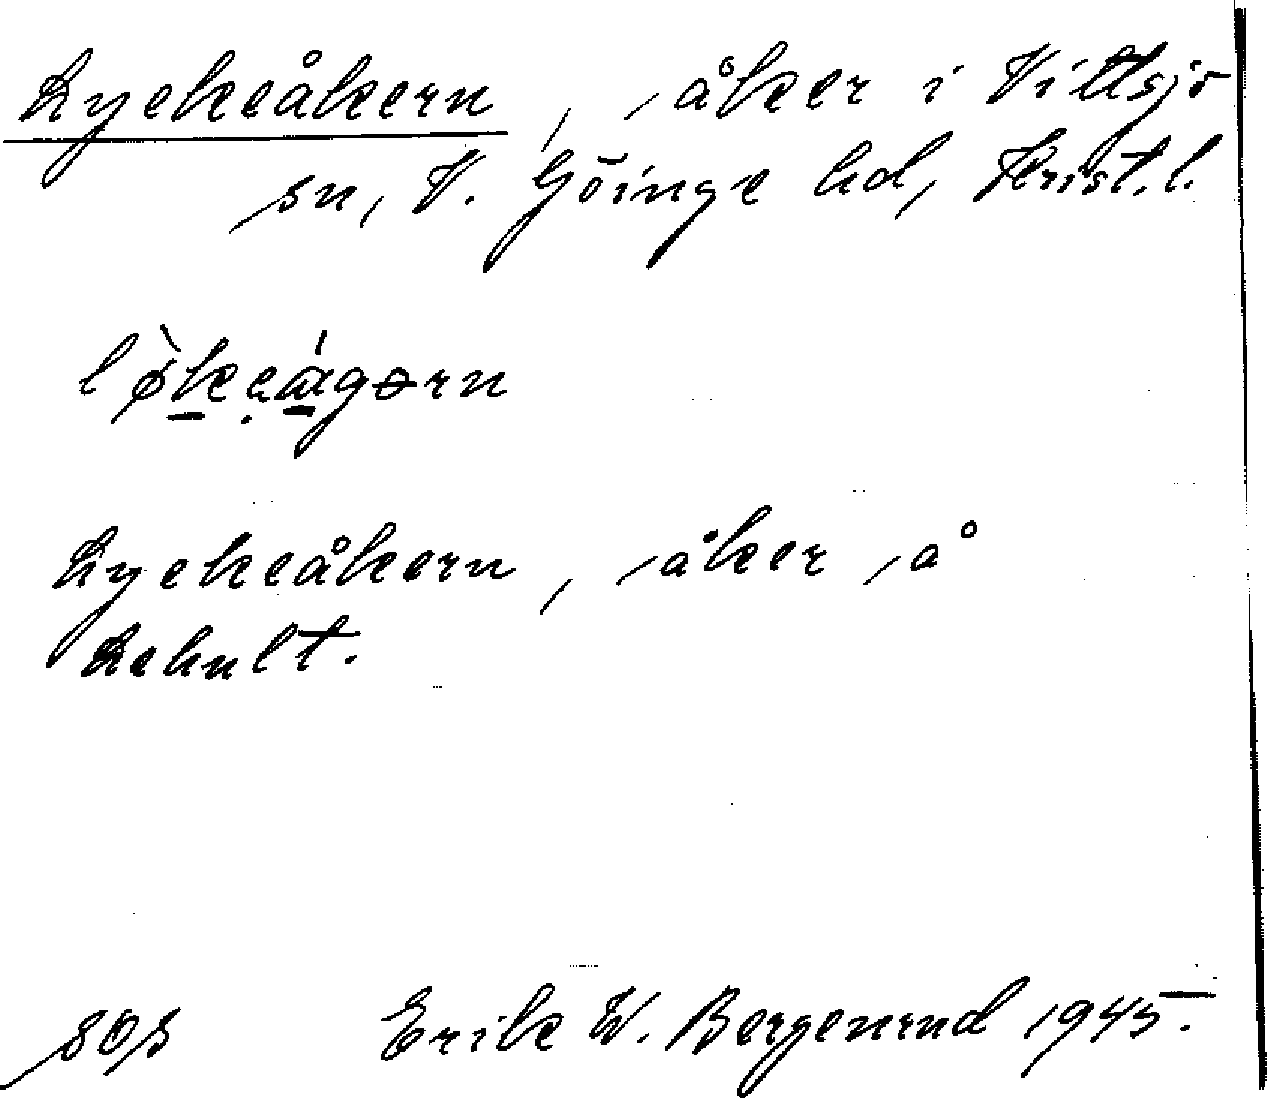 Lyckeåkern, åker i Vittsjö
sn, V. Göinge hd, Krist. l.
lø̀keágərn
Lyckeåkern, åker å
Lehult.
Erik W. Bergenrud 1945.